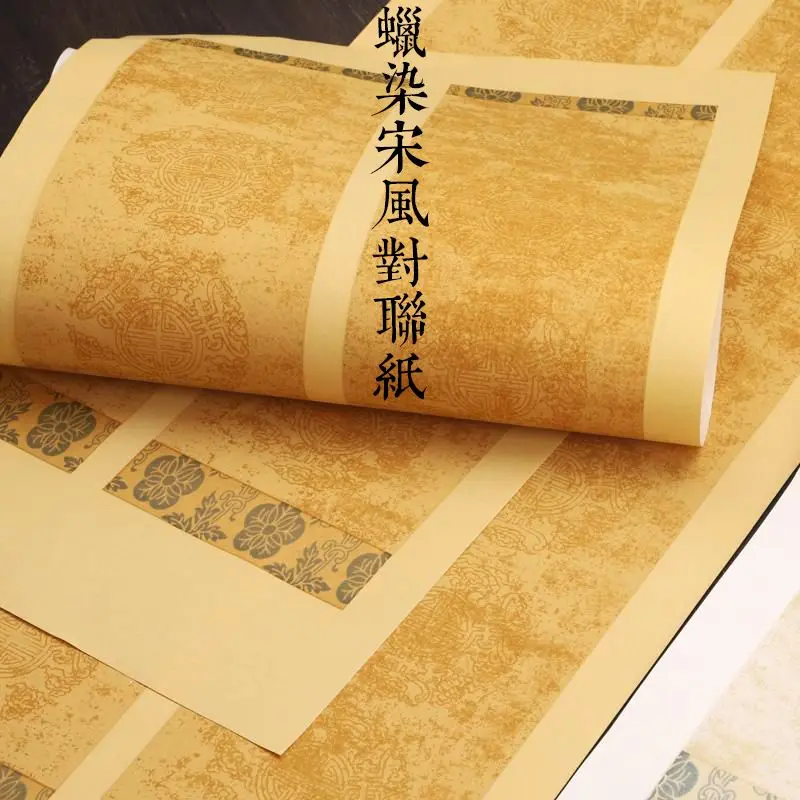 蠟染宋風對聯紙